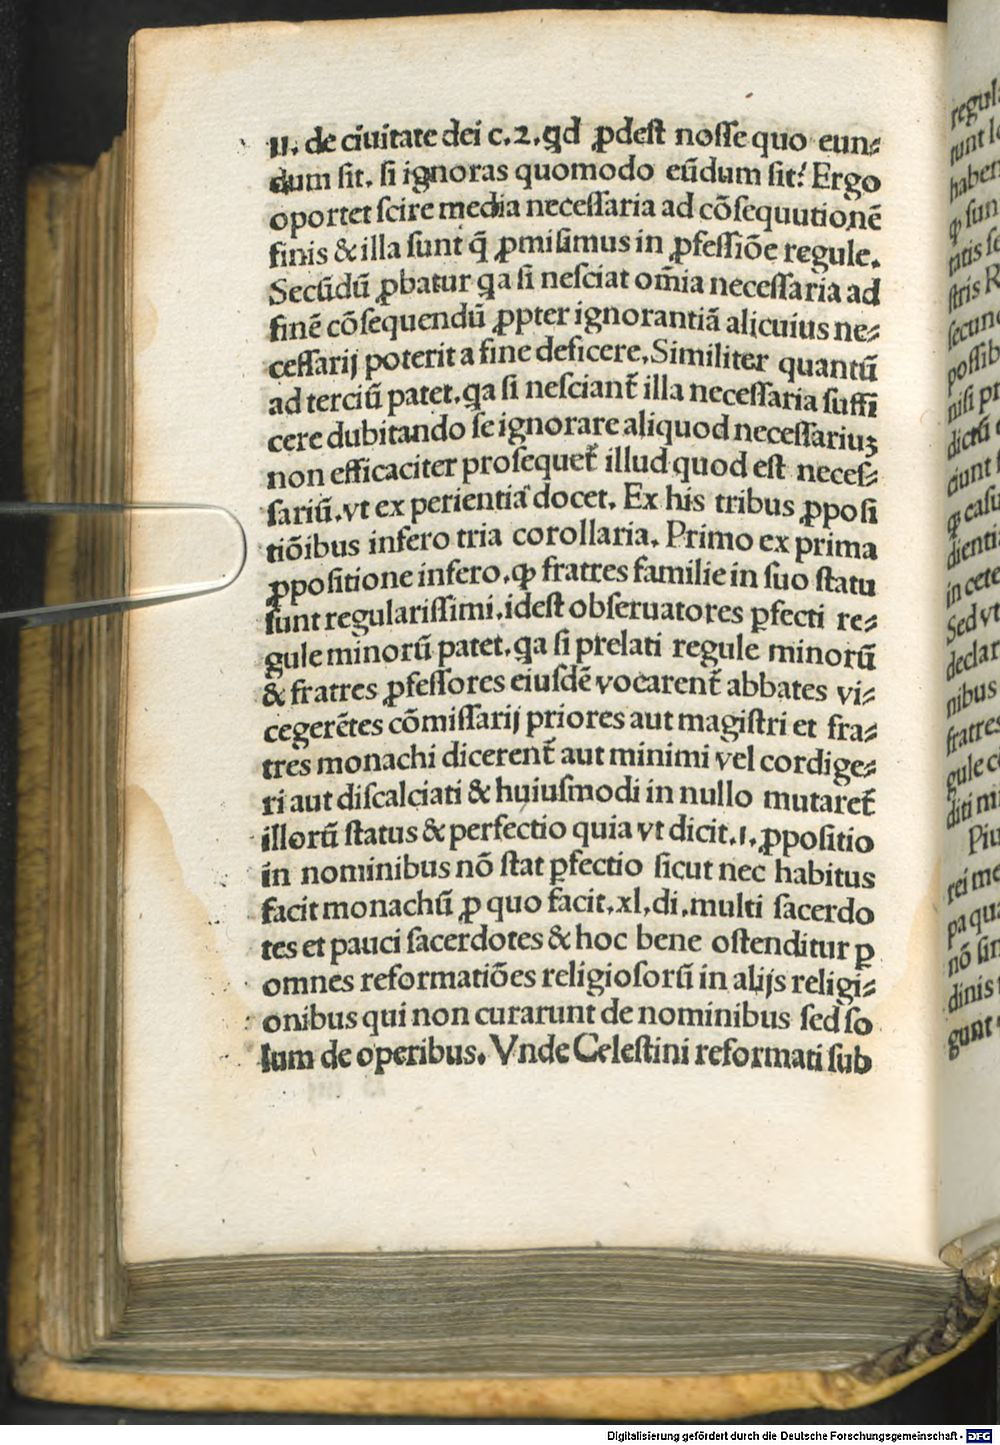 11. de ciuitate dei c.2.qd ꝓdest nosse quo eun⸗
dum sit. si ignoras quomodo eũdum sit? Ergo
oportet scire media necessaria ad cõsequutionẽ
finis & illa sunt q̃ ꝓmisimus in ꝓfessiõe regule.
Secũdũ ꝓbatur qa si nesciat om̃ia necessaria ad
finẽ cõsequendũ ꝓpter ignorantiã alicuius ne⸗
cessarij poterit a fine deficere. Similiter quantũ
ad terciũ patet. qa si nesciant̃ illa necessaria suffi
cere dubitando se ignorare aliquod necessariuꝫ
non efficaciter prosequet̃ illud quod est neces⸗
sariũ. vt ex perientia docet. Ex his tribus ꝓposi
tiõibus infero tria corollaria. Primo ex prima
ꝓpositione infero. ꝙ fratres familie in suo statu
sunt regularissimi. idest obseruatores ꝑfecti re⸗
gule minorũ patet. qa si prelati regule minorũ
& fratres ꝓfessores eiusdẽ vocarent̃ abbates vi⸗
cegerẽtes cõmissarij priores aut magistri et fra⸗
tres monachi dicerent̃ aut minimi vel cordige⸗
ri aut discalciati & huiusmodi in nullo mutaret̃
illorũ status & perfectio quia vt dicit.1.ꝓpositio
in nominibus nõ stat ꝑfectio sicut nec habitus
facit monachũ ꝑ quo facit.xl.di.multi sacerdo
tes et pauci sacerdotes & hoc bene ostenditur ꝑ
omnes reformatiões religiosorũ in alijs religi⸗
onibus qui non curarunt de nominibus sed so
lum de operibus. Vnde Celestini reformati sub
Digitalisierung gefördert durch die Deutsche Forschungsgemeinschaft - DFG